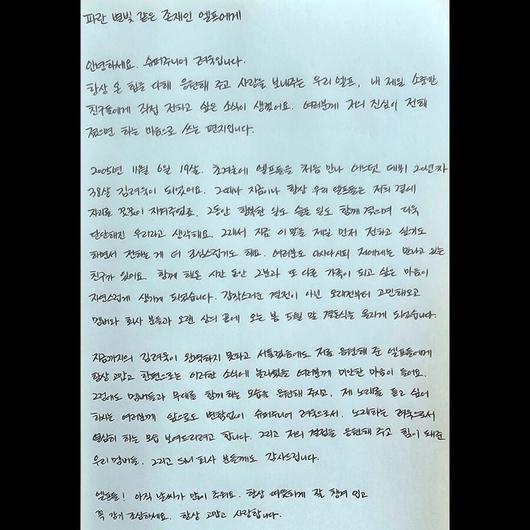 파란 별빛 같은 존재인 엘프에게
안녕하세요. 슈퍼주니어 려욱입니다.
항상 온 힘을 다해 응원해 주고 사랑을 보내주는 우리 엘프, 내 제일 소중한
친구들에게 직접 전하고 싶은 소식이 생겼어요. 여러분께 저의 진심이 전해
졌으면 하는 마음으로 쓰는 편지입니다.
2005년 11월 6일 19살. 초겨울에 엘프들을 처음 만나 어느덧 데뷔 20년차
38살 김려욱이 되었어요. 그때나 지금이나 항상 우리 엘프들은 저의 곁에
자리를 꼿꼿이 지켜주었죠. 그동안 행복한 일도 슬픈 일도 함께 겪으며 더욱
단단해진 우리라고 생각해요. 그래서 지금 이 말을 제일 먼저 전하고 싶기도
하면서 전하는 게 더 조심스럽기도 해요. 여러분도 아시다시피 저에게는 만나고 있는
친구가 있어요. 함께 해온 시간 동안 그분과 또 다른 가족이 되고 싶은 마음이
자연스럽게 생기게 되었습니다. 갑작스러운 결정이 아닌 오래전부터 고민해오고
멤버와 회사 분들과 오랜 상의 끝에 오는 봄 5월 말 결혼식을 올리게 되었습니다.
지금까지의 김려욱이 완벽하지 못하고 서툴렀음에도 저를 응원해 준 엘프들에게
항상 고맙고 한편으로는 이러한 소식에 놀라셨을 여러분께 미안한 마음이 들어요.
그럼에도 멤버들과 무대를 함께 하는 모습을 응원해 주시고, 제 노래를 듣고 싶어
하시는 여러분께 앞으로도 변함없이 슈퍼주니어 려욱으로서, 노래하는 려욱으로서
열심히 하는 모습 보여드리려고 합니다. 그리고 저의 결정을 응원해 주고 힘이 돼준
우리 멤버들, 그리고 SM 회사 분들께도 감사드립니다.
엘프들! 아직 날씨가 많이 추워요. 항상 따뜻하게 잘 챙겨 입고
꼭 감기 조심하세요. 항상 고맙고 사랑합니다.